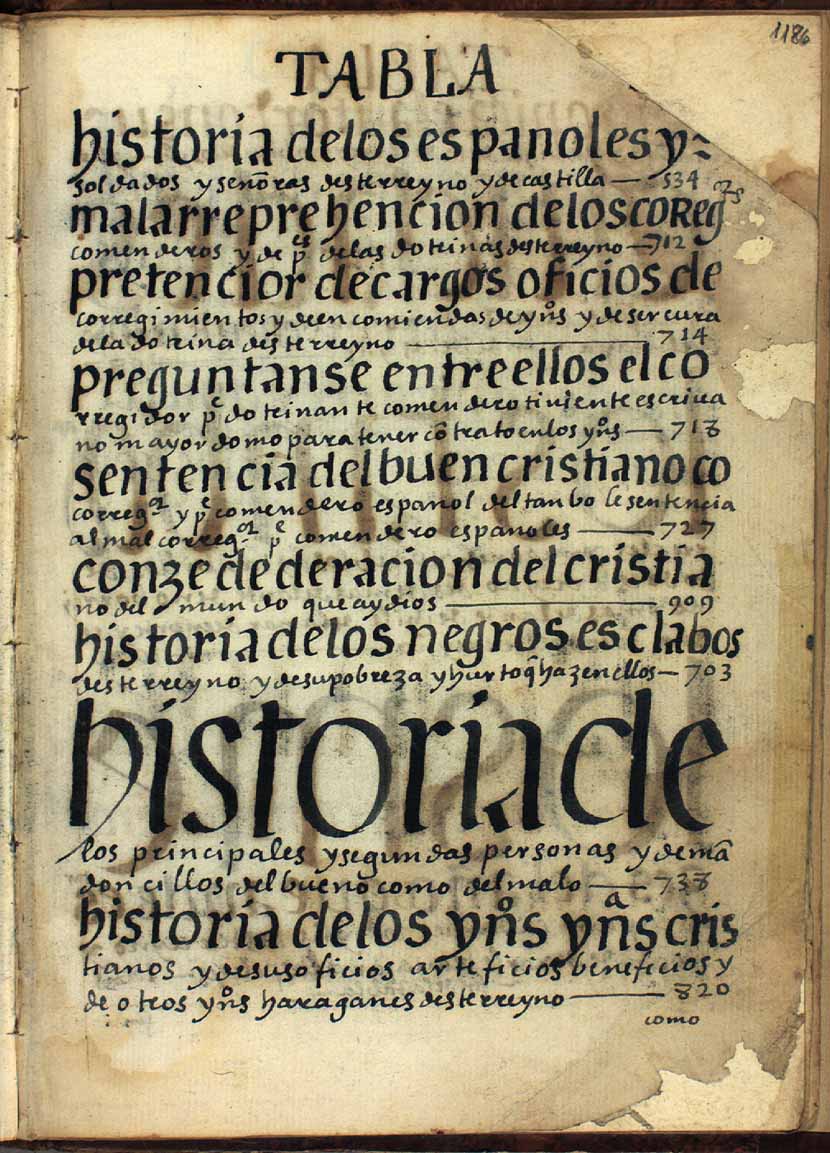 1186
TABLA
historia delos espanoles y
soldados y señoras desterreyno y decastilla — 534
mala rreprehencion delos coreg res
comenderos y de pes delas dotrinas desterreyno — 712
pretencior de cargos oficios de
corregimientos y de encomiendas de ynos y de ser cura
dela dotrina desterreyno — 714
preguntanse entre ellos el co
rregidor pe dotrinante comendero tiniente escriua
no mayordomo para tener cōtrato en los yños — 718
sentencia del buen cristiano co
corregor y pe comendero español del tanbo le sentencia
al mal corregor pe comendero españoles — 727
conzedederacion del cristia
no del mundo que ay dios — 909
historia delos negros esclabos
desterreyno y de su pobreza y hurto q̃ hazen ellos — 703
historia de
los principales y segundas personas y de mā
doncillos del bueno como del malo — 738
historia delos ynos ynas cris
tianos y de sus oficios arteficios beneficios y
de otros ynos haraganes desterreyno — 820
como